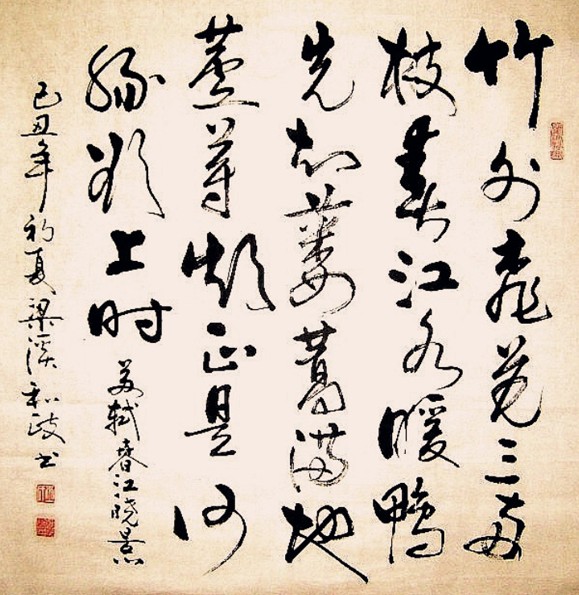 竹外桃花三两
枝春江水暖鸭
先知蒌蒿满地
蘆芽短正是河
豚欲上时 苏轼春江晓景
己丑年初夏梁溪和书